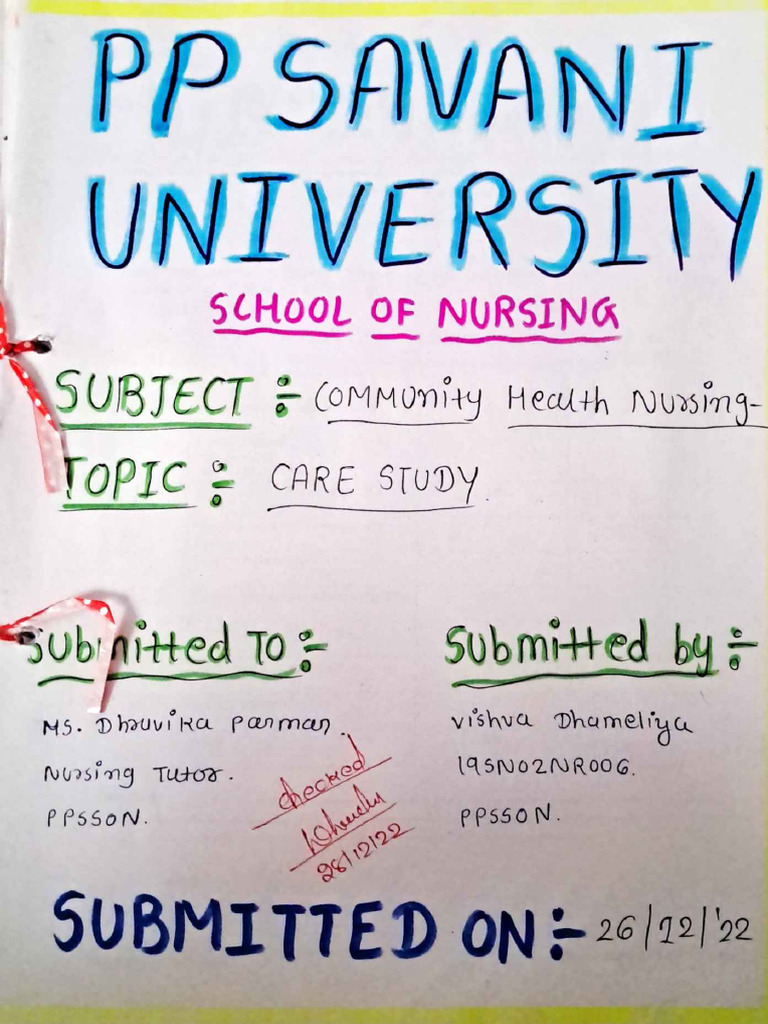 PP SAVANI
UNIVERSITY
SCHOOL OF NURSING
SUBJECT :- Community Health Nursing-
TOPIC :- CARE STUDY.
Submitted To :-
Ms. Dhruvika Parmar.
Nursing Tutor.
PPSSON.
Submitted by :-
Vishva Dhameliya
19SN02NR006.
PPSSON.
checked
28/12/22
SUBMITTED ON :- 26/12/'22